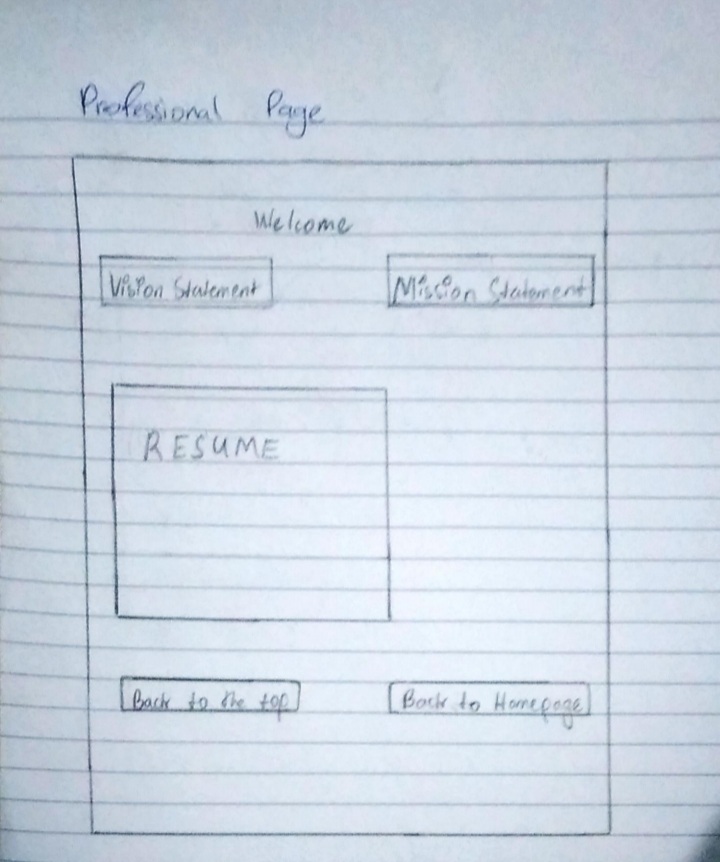 Professional Page
Welcome
Vision Statement
Mission Statement
RESUME
Back to the top
Back to Homepage